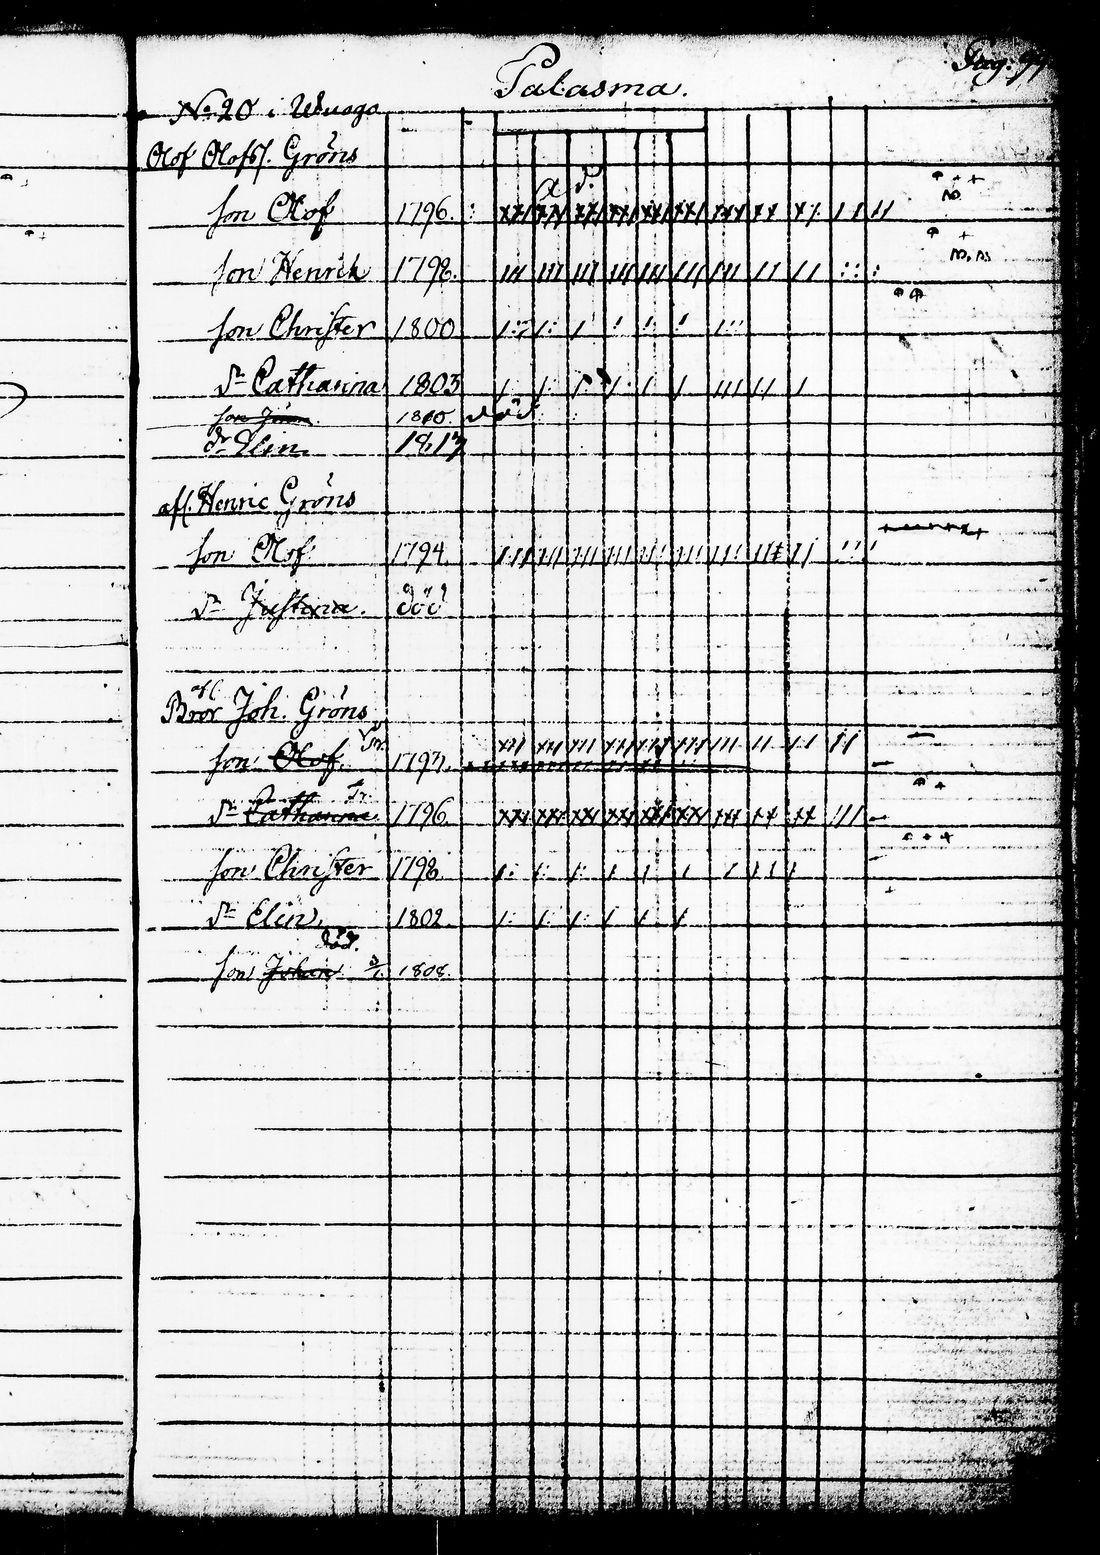 Pag. 99
Palasma.
No. 20 i Wuago
Olof Olofss. Gröns
son Olof 1796.
son Henrik 1798.
son Christer 1800
dr Catharina 1803
son 1810. död
dr Elin 1817
afl. Henric Gröns
son Olof 1794.
dr Justina. död
afl.
Bror Joh. Gröns
son Olof 1793.
dr Catharina 1796.
son Christer 1798.
dr Elin, 1802.
död.
son Johan 1808.